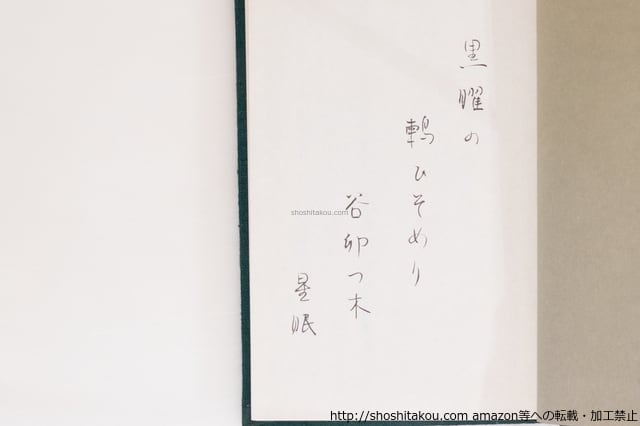 黒曜の
鶇ひそめり
谷卯つ木
星眠
shoshitakou.com
http://shoshitakou.com amazon等への転載・加工禁止